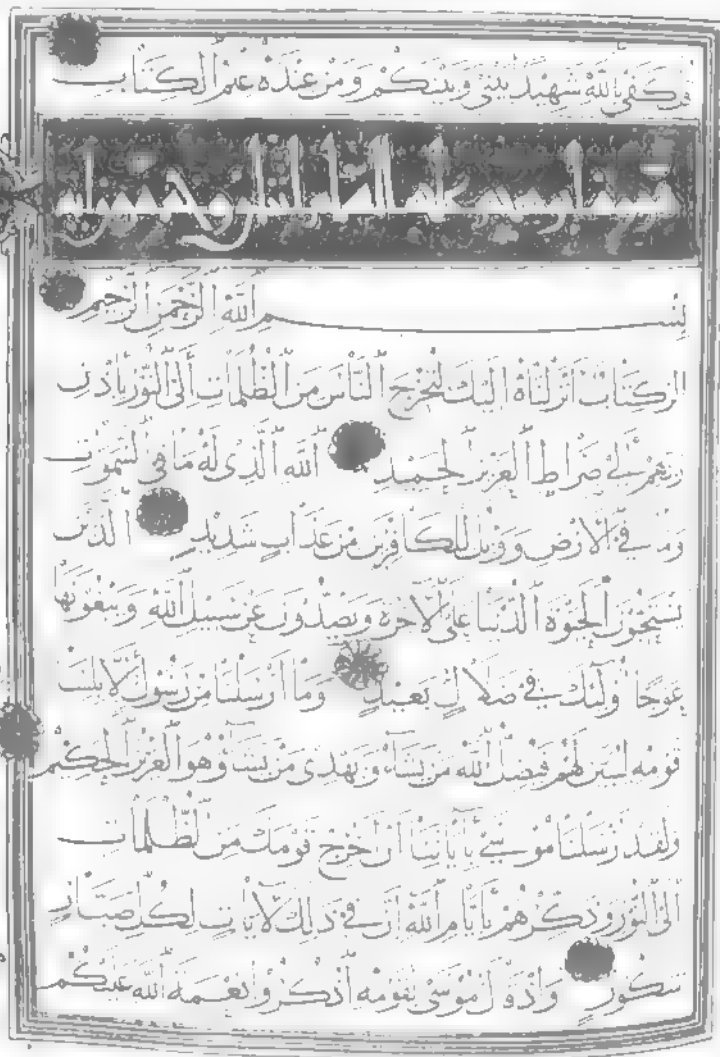 قل كفى بالله شهيدا بيني وبينكم ومن عنده علم الكتاب
بسم الله الرحمن الرحيم
الر كتاب أنزلناه إليك لتخرج الناس من الظلمات إلى النور بإذن
ربهم إلى صراط العزيز الحميد الله الذي له ما في السموت
وما في الأرض وويل للكافرين من عذاب شديد الذين
يستحبون الحيوة الدنيا على الآخرة ويصدون عن سبيل الله ويبغونها
عوجا أولئك في ضلال بعيد وما أرسلنا من رسول إلا بلسان
قومه ليبين لهم فيضل الله من يشاء ويهدي من يشاء وهو العزيز الحكيم
ولقد أرسلنا موسى بآياتنا أن أخرج قومك من الظلمات
إلى النور وذكرهم بأيام الله إن في ذلك لآيات لكل صبار
شكور وإذ قال موسى لقومه اذكروا نعمة الله عليكم